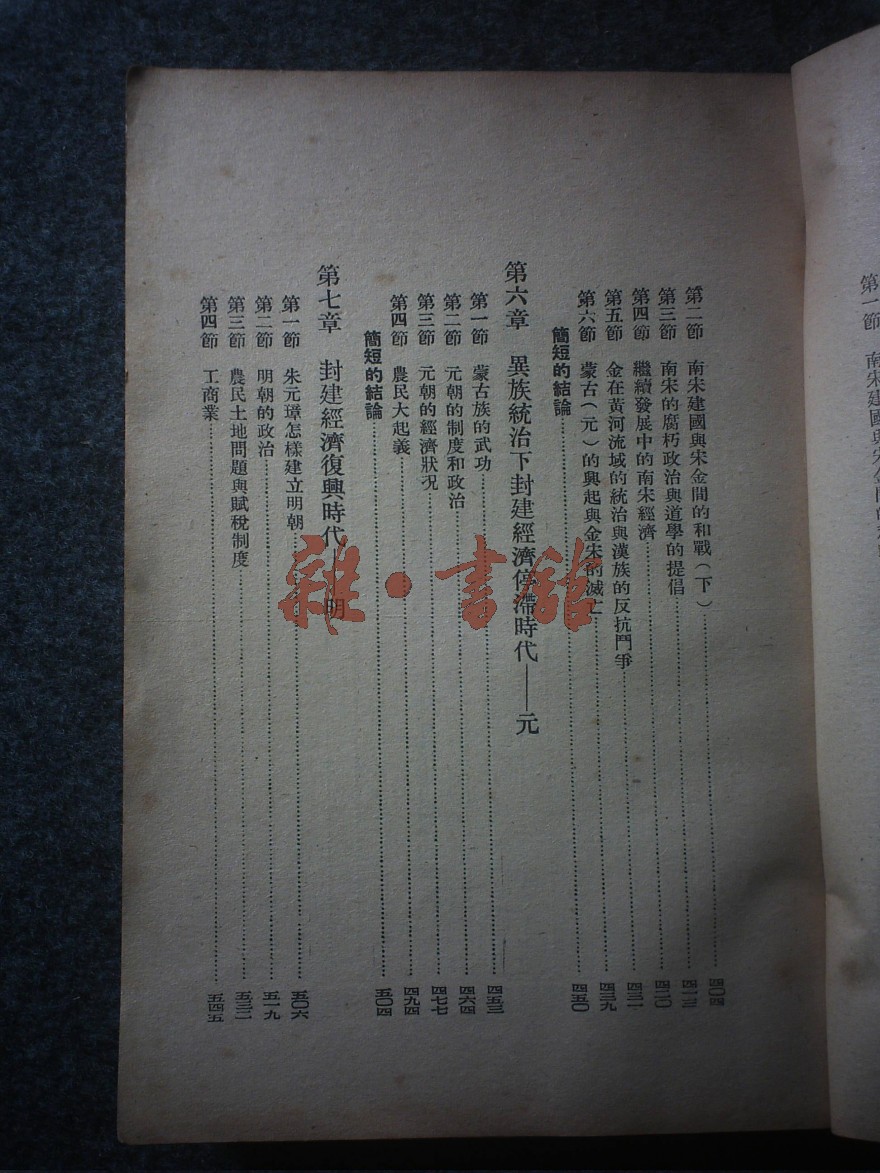 第一節 南宋建國與宋金間的
第二節 南宋建國與宋金間的和戰(下)……四〇四
第三節 南宋的腐朽政治與道學的提倡……
第四節 繼續發展中的南宋經濟……四三一
第五節 金在黃河流域的統治與漢族的反抗鬥爭……四三九
第六節 蒙古(元)的興起與金宋的滅亡……四五〇
簡短的結論……
第六章 異族統治下封建經濟停滯時代——元
第一節 蒙古族的武功……四五三
第二節 元朝的制度和政治……四六四
第三節 元朝的經濟狀况……四七七
第四節 農民大起義……四九四
簡短的結論……五〇四
第七章 封建經濟復興時代——明
第一節 朱元璋怎樣建立明朝……五〇六
第二節 明朝的政治……五一九
第三節 農民土地問題與賦稅制度……五三二
第四節 工商業……五四五
雜·書館